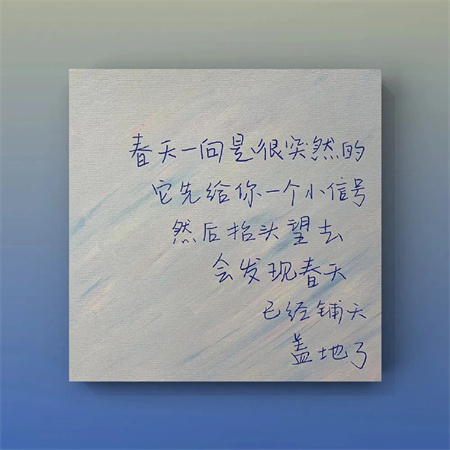 春天一向是很突然的
它先给你一个小信号
然后抬头望去
会发现春天
已经铺天
盖地了